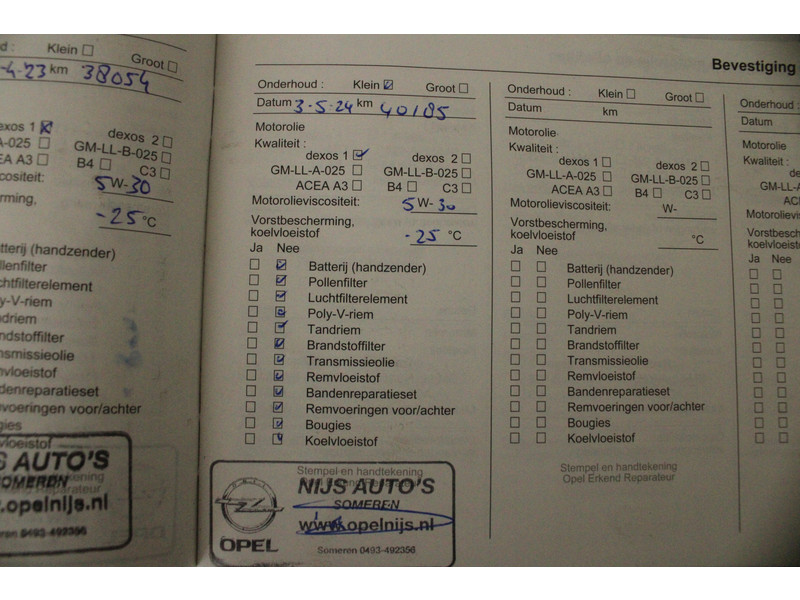 d : Klein Groot
-4-23 km 38054
exos 1 dexos 2
A-025 GM-LL-B-025
EA A3 B4 C3
scositeit: 5W-30
rming,
-25 °C
atterij (handzender)
llenfilter
chtfilterelement
oly-V-riem
ndriem
ndstoffilter
nsmissieolie
mvloeistof
andenreparatieset
mvoeringen voor/achter
ugies
elvloeistof
S AUTO'S
SOMEREN
.opelnijs.nl
eren 0493-492356
Bevestiging
Onderhoud : Klein Groot
Datum 3-5-24 km 40185
Motorolie
Kwaliteit :
dexos 1 dexos 2
GM-LL-A-025 GM-LL-B-025
ACEA A3 B4 C3
Motorolieviscositeit: 5W-30
Vorstbescherming,
koelvloeistof -25 °C
Ja Nee
Batterij (handzender)
Pollenfilter
Luchtfilterelement
Poly-V-riem
Tandriem
Brandstoffilter
Transmissieolie
Remvloeistof
Bandenreparatieset
Remvoeringen voor/achter
Bougies
Koelvloeistof
Stempel en handtekening
Opel Erkend Reparateur
NIJS AUTO'S
SOMEREN
www.opelnijs.nl
OPEL
Someren 0493-492356
Onderhoud : Klein Groot
Datum km
Motorolie
Kwaliteit :
dexos 1 dexos 2
GM-LL-A-025 GM-LL-B-025
ACEA A3 B4 C3
Motorolieviscositeit: W-
Vorstbescherming,
koelvloeistof °C
Ja Nee
Batterij (handzender)
Pollenfilter
Luchtfilterelement
Poly-V-riem
Tandriem
Brandstoffilter
Transmissieolie
Remvloeistof
Bandenreparatieset
Remvoeringen voor/achter
Bougies
Koelvloeistof
Stempel en handtekening
Opel Erkend Reparateur
Onderhoud :
Datum
Motorolie
Kwaliteit :
GM-LL-A
AC
Motorolievis
Vorstbesch
koelvloeisto
Ja Nee